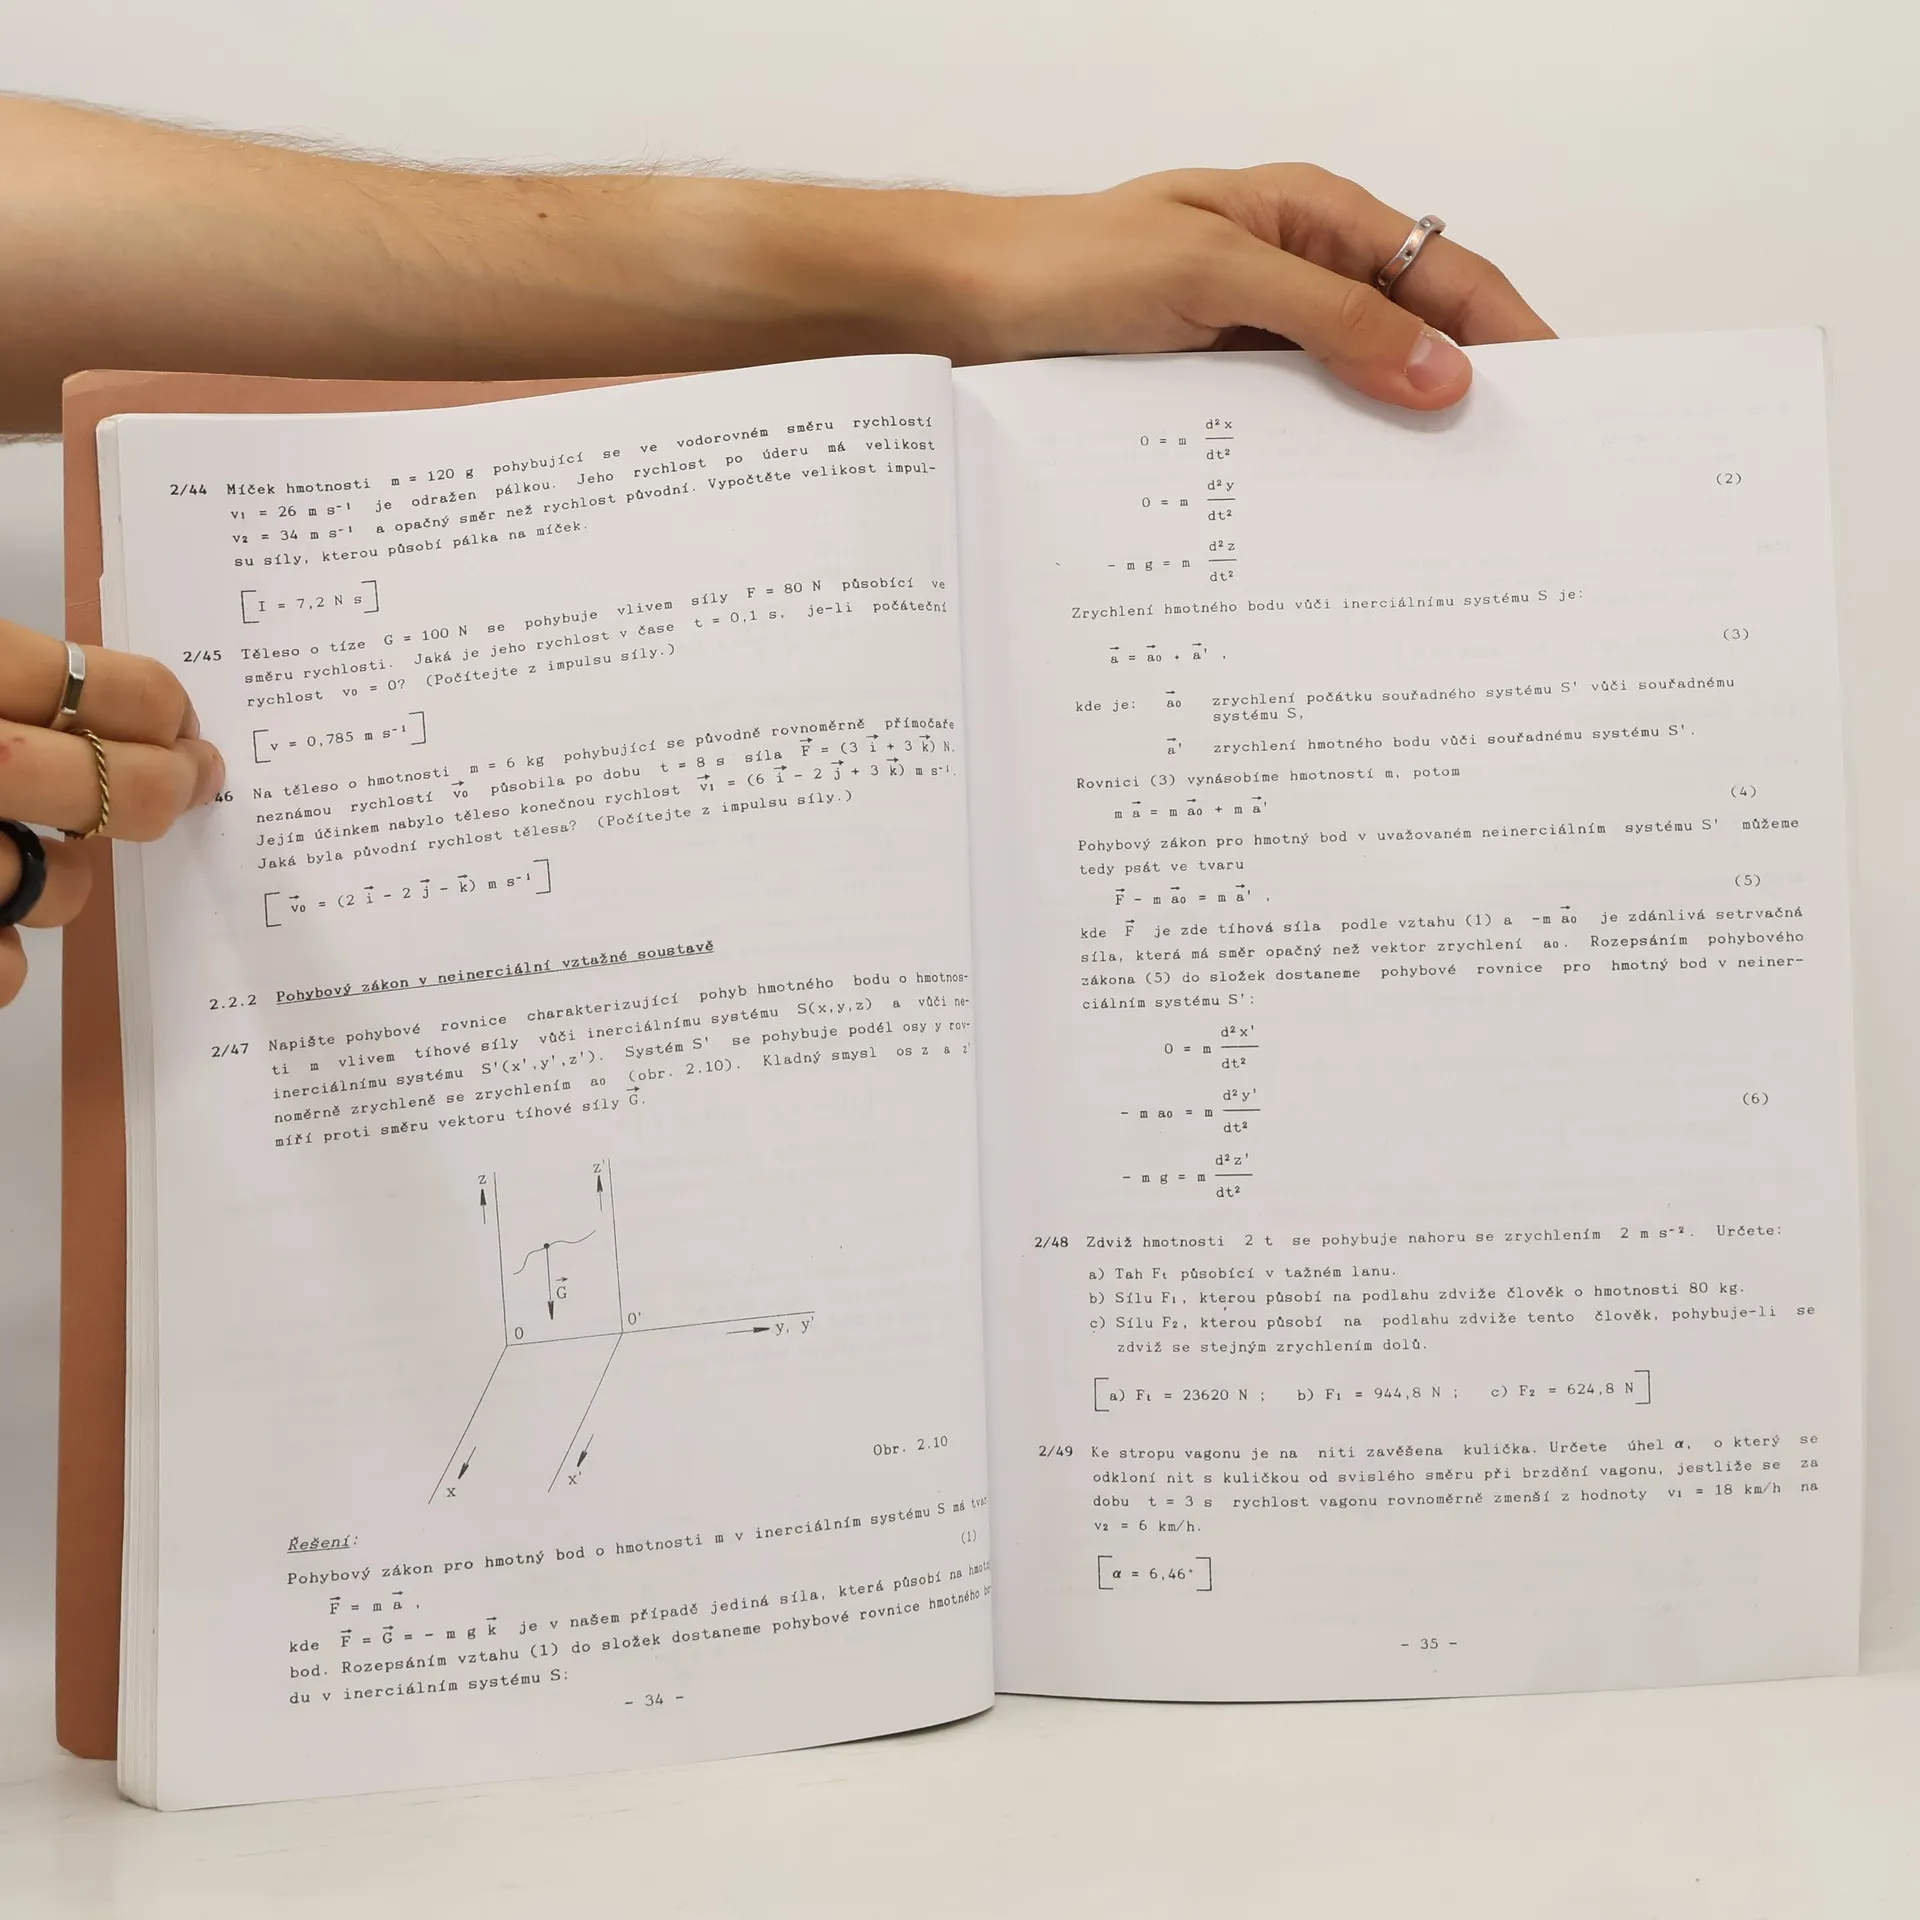 2/44 Míček hmotnosti m = 120 g pohybující se ve vodorovném směru rychlostí
v₁ = 26 m s⁻¹ je odražen pálkou. Jeho rychlost po úderu má velikost
v₂ = 34 m s⁻¹ a opačný směr než rychlost původní. Vypočtěte velikost impul-
su síly, kterou působí pálka na míček.
[I = 7,2 N s]
2/45 Těleso o tíze G = 100 N se pohybuje vlivem síly F = 80 N působící ve
směru rychlosti. Jaká je jeho rychlost v čase t = 0,1 s, je-li počáteční
rychlost v₀ = 0? (Počítejte z impulsu síly.)
[v = 0,785 m s⁻¹]
46 Na těleso o hmotnosti m = 6 kg pohybující se původně rovnoměrně přímočaře
neznámou rychlostí v⃗₀ působila po dobu t = 8 s síla F⃗ = (3 i⃗ + 3 k⃗) N.
Jejím účinkem nabylo těleso konečnou rychlost v⃗₁ = (6 i⃗ - 2 j⃗ + 3 k⃗) m s⁻¹.
Jaká byla původní rychlost tělesa? (Počítejte z impulsu síly.)
[v⃗₀ = (2 i⃗ - 2 j⃗ - k⃗) m s⁻¹]
2.2.2 Pohybový zákon v neinerciální vztažné soustavě
2/47 Napište pohybové rovnice charakterizující pohyb hmotného bodu o hmotnos-
ti m vlivem tíhové síly vůči inerciálnímu systému S(x,y,z) a vůči ne-
inerciálnímu systému S'(x',y',z'). Systém S' se pohybuje podél osy y rov-
noměrně zrychleně se zrychlením a₀ (obr. 2.10). Kladný smysl os z a z'
míří proti směru vektoru tíhové síly G⃗.
z z'
G⃗
O O' y, y'
x x'
Obr. 2.10
Řešení:
Pohybový zákon pro hmotný bod o hmotnosti m v inerciálním systému S má
F⃗ = m a⃗ , (1)
kde F⃗ = G⃗ = - m g k⃗ je v našem případě jediná síla, která působí na
bod. Rozepsáním vztahu (1) do složek dostaneme pohybové rovnice hmotného
du v inerciálním systému S:
- 34 -
0 = m d²x/dt²
0 = m d²y/dt² (2)
- m g = m d²z/dt²
Zrychlení hmotného bodu vůči inerciálnímu systému S je:
a⃗ = a⃗₀ + a⃗' , (3)
kde je: a⃗₀ zrychlení počátku souřadného systému S' vůči souřadnému
systému S,
a⃗' zrychlení hmotného bodu vůči souřadnému systému S'.
Rovnici (3) vynásobíme hmotností m, potom
m a⃗ = m a⃗₀ + m a⃗' (4)
Pohybový zákon pro hmotný bod v uvažovaném neinerciálním systému S' můžeme
tedy psát ve tvaru
F⃗ - m a⃗₀ = m a⃗' , (5)
kde F⃗ je zde tíhová síla podle vztahu (1) a -m a⃗₀ je zdánlivá setrvačná
síla, která má směr opačný než vektor zrychlení a₀. Rozepsáním pohybového
zákona (5) do složek dostaneme pohybové rovnice pro hmotný bod v neiner-
ciálním systému S':
0 = m d²x'/dt²
- m a₀ = m d²y'/dt² (6)
- m g = m d²z'/dt²
2/48 Zdviž hmotnosti 2 t se pohybuje nahoru se zrychlením 2 m s⁻². Určete:
a) Tah Fₜ působící v tažném lanu.
b) Sílu F₁, kterou působí na podlahu zdviže člověk o hmotnosti 80 kg.
c) Sílu F₂, kterou působí na podlahu zdviže tento člověk, pohybuje-li se
zdviž se stejným zrychlením dolů.
[a) Fₜ = 23620 N ; b) F₁ = 944,8 N ; c) F₂ = 624,8 N]
2/49 Ke stropu vagonu je na niti zavěšena kulička. Určete úhel α, o který se
odkloní nit s kuličkou od svislého směru při brzdění vagonu, jestliže se za
dobu t = 3 s rychlost vagonu rovnoměrně zmenší z hodnoty v₁ = 18 km/h na
v₂ = 6 km/h.
[α = 6,46°]
- 35 -